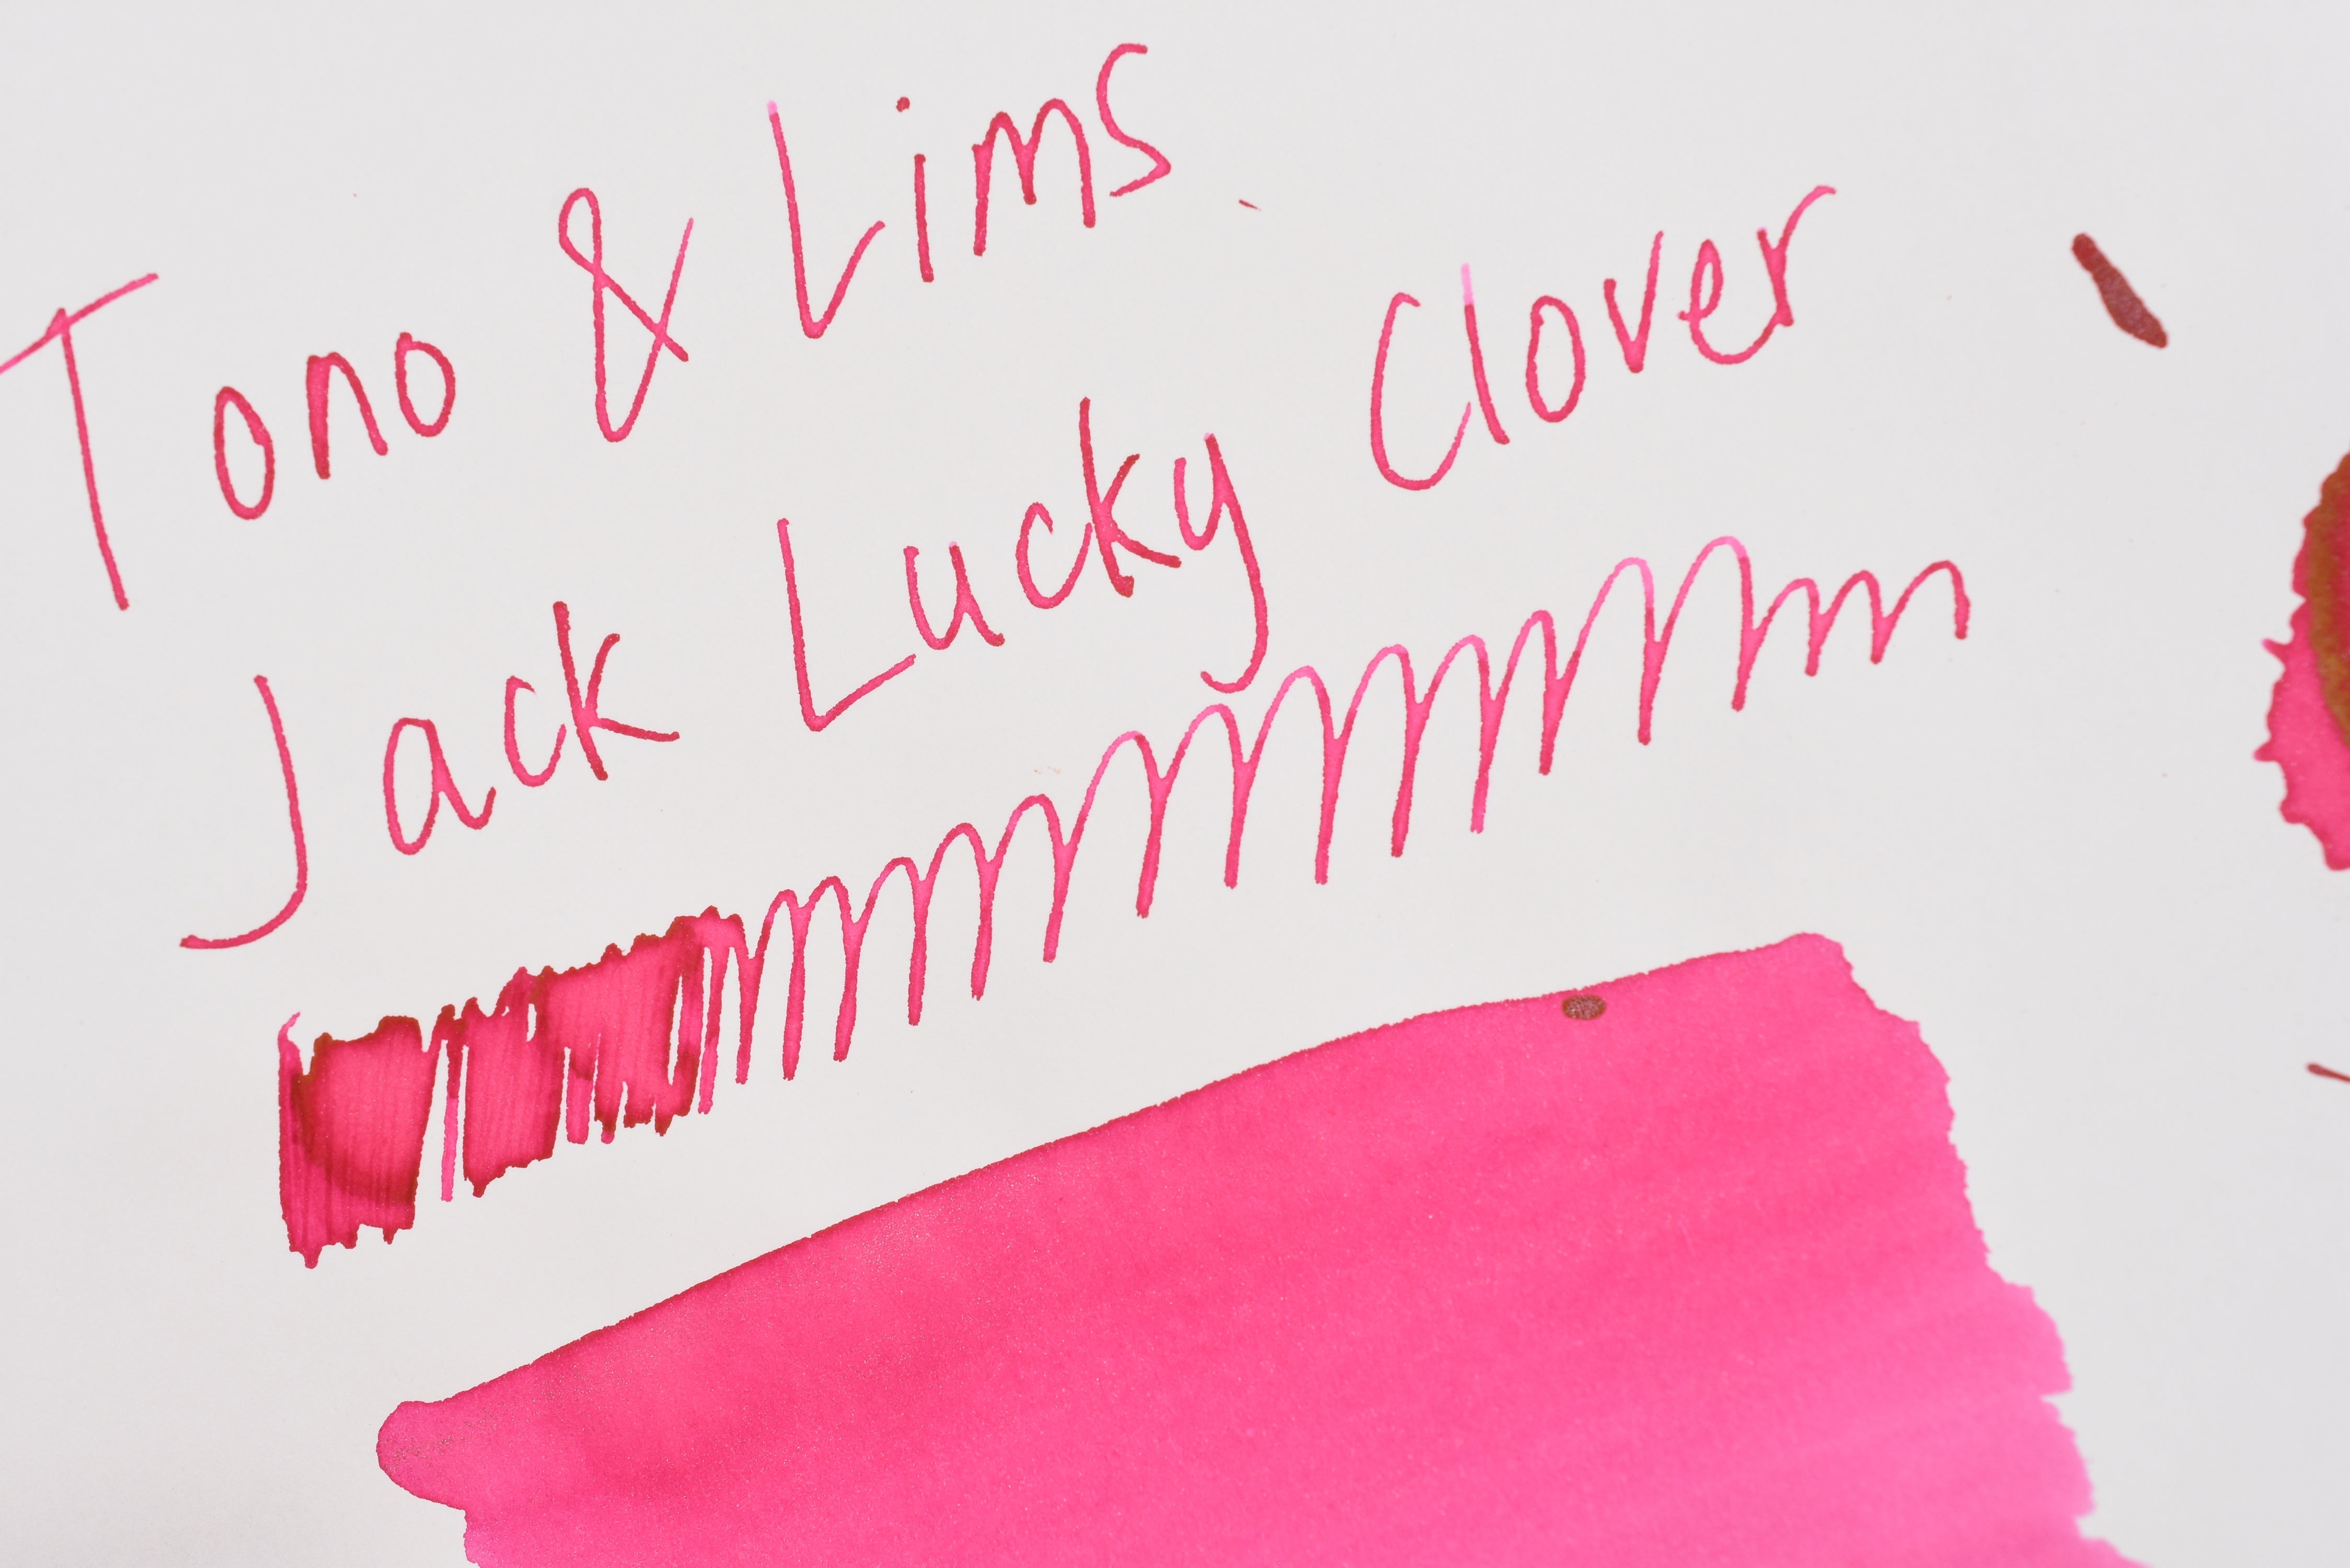 Tono & Lims
Jack Lucky Clover